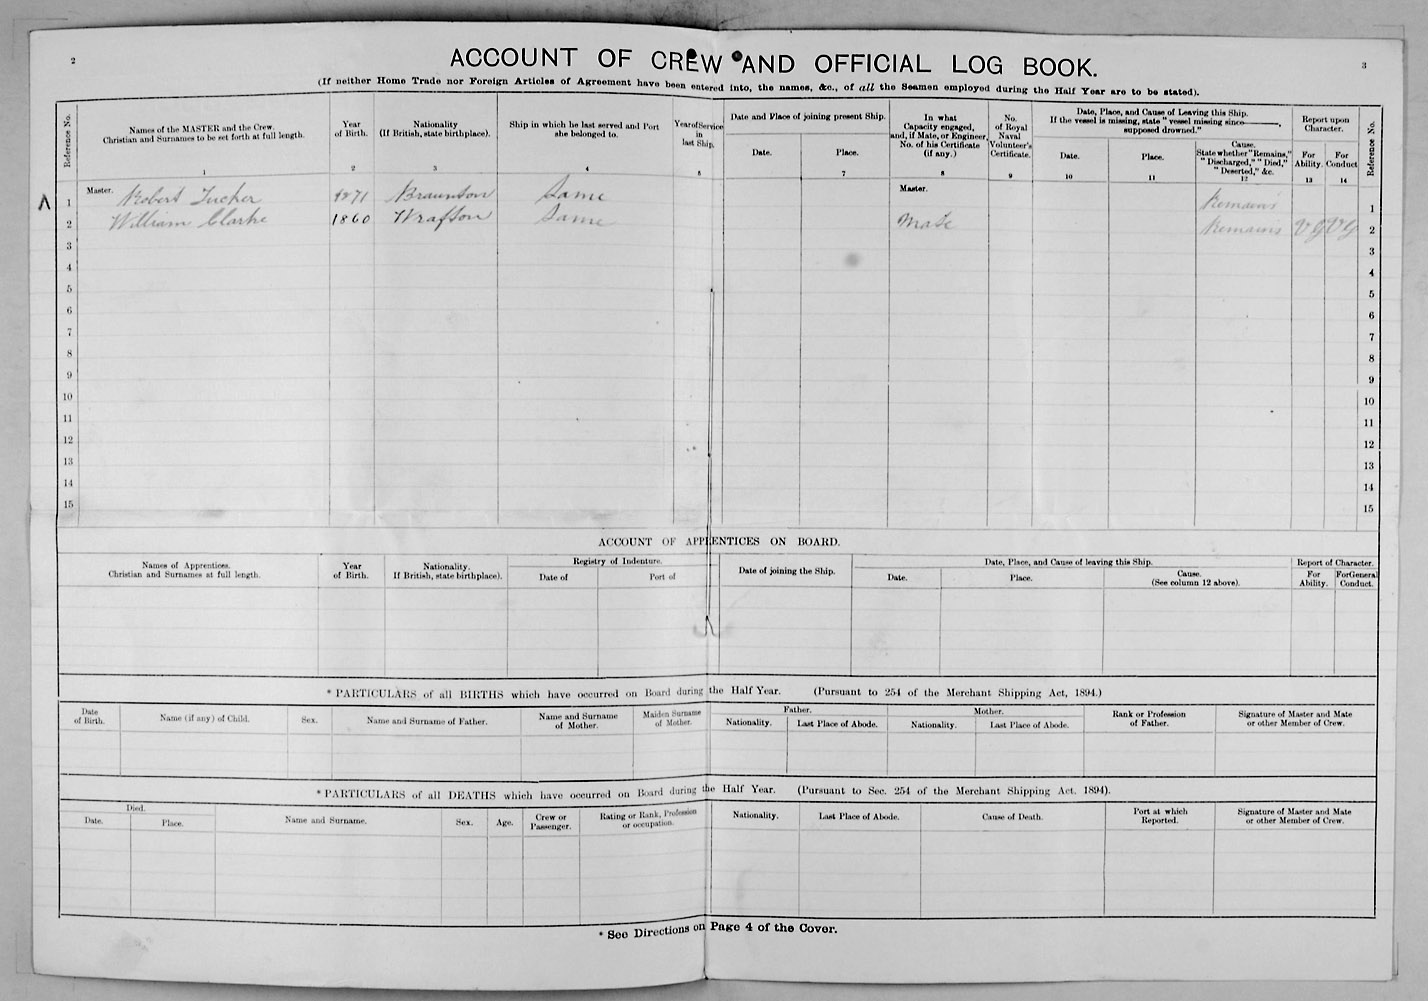 2
3
ACCOUNT OF CREW AND OFFICIAL LOG BOOK.
(If neither Home Trade nor Foreign Articles of Agreement have been entered into, the names, &c., of all the Seamen employed during the Half Year are to be stated).
Reference No.
Names of the MASTER and the Crew.
Christian and Surnames to be set forth at full length.
1
Year
of Birth.
2
Nationality
(If British, state birthplace).
3
Ship in which he last served and Port
she belonged to.
4
Year of Service
in
last Ship.
5
Date and Place of joining present Ship.
Date.
Place.
7
In what
Capacity engaged,
and, if Mate, or Engineer,
No. of his Certificate
(if any.)
8
No.
of Royal
Naval
Volunteer's
Certificate.
9
Date, Place, and Cause of Leaving this Ship.
If the vessel is missing, state "vessel missing since———,
supposed drowned."
Date.
10
Place.
11
Cause.
State whether "Remains,"
"Discharged," "Died,"
"Deserted," &c.
12
Report upon
Character.
For
Ability.
13
For
Conduct
14
Reference No.
1 Master. Robert Tucker 1871 Braunton Same Master. Remains 1
2 William Clarke 1860 Wrafton Same Mate Remains VG VG 2
3 3
4 4
5 5
6 6
7 7
8 8
9 9
10 10
11 11
12 12
13 13
14 14
15 15
ACCOUNT OF APPRENTICES ON BOARD.
Names of Apprentices.
Christian and Surnames at full length.
Year
of Birth.
Nationality.
If British, state birthplace).
Registry of Indenture.
Date of
Port of
Date of joining the Ship.
Date, Place, and Cause of leaving this Ship.
Date.
Place.
Cause.
(See column 12 above).
Report of Character.
For
Ability.
For General
Conduct.
* PARTICULARS of all BIRTHS which have occurred on Board during the Half Year. (Pursuant to 254 of the Merchant Shipping Act, 1894.)
Date
of Birth.
Name (if any) of Child.
Sex.
Name and Surname of Father.
Name and Surname
of Mother.
Maiden Surname
of Mother.
Father.
Nationality.
Last Place of Abode.
Mother.
Nationality.
Last Place of Abode.
Rank or Profession
of Father.
Signature of Master and Mate
or other Member of Crew.
* PARTICULARS of all DEATHS which have occurred on Board during the Half Year. (Pursuant to Sec. 254 of the Merchant Shipping Act, 1894).
Died.
Date.
Place.
Name and Surname.
Sex.
Age.
Crew or
Passenger.
Rating or Rank, Profession
or occupation.
Nationality.
Last Place of Abode.
Cause of Death.
Port at which
Reported.
Signature of Master and Mate
or other Member of Crew.
* See Directions on Page 4 of the Cover.